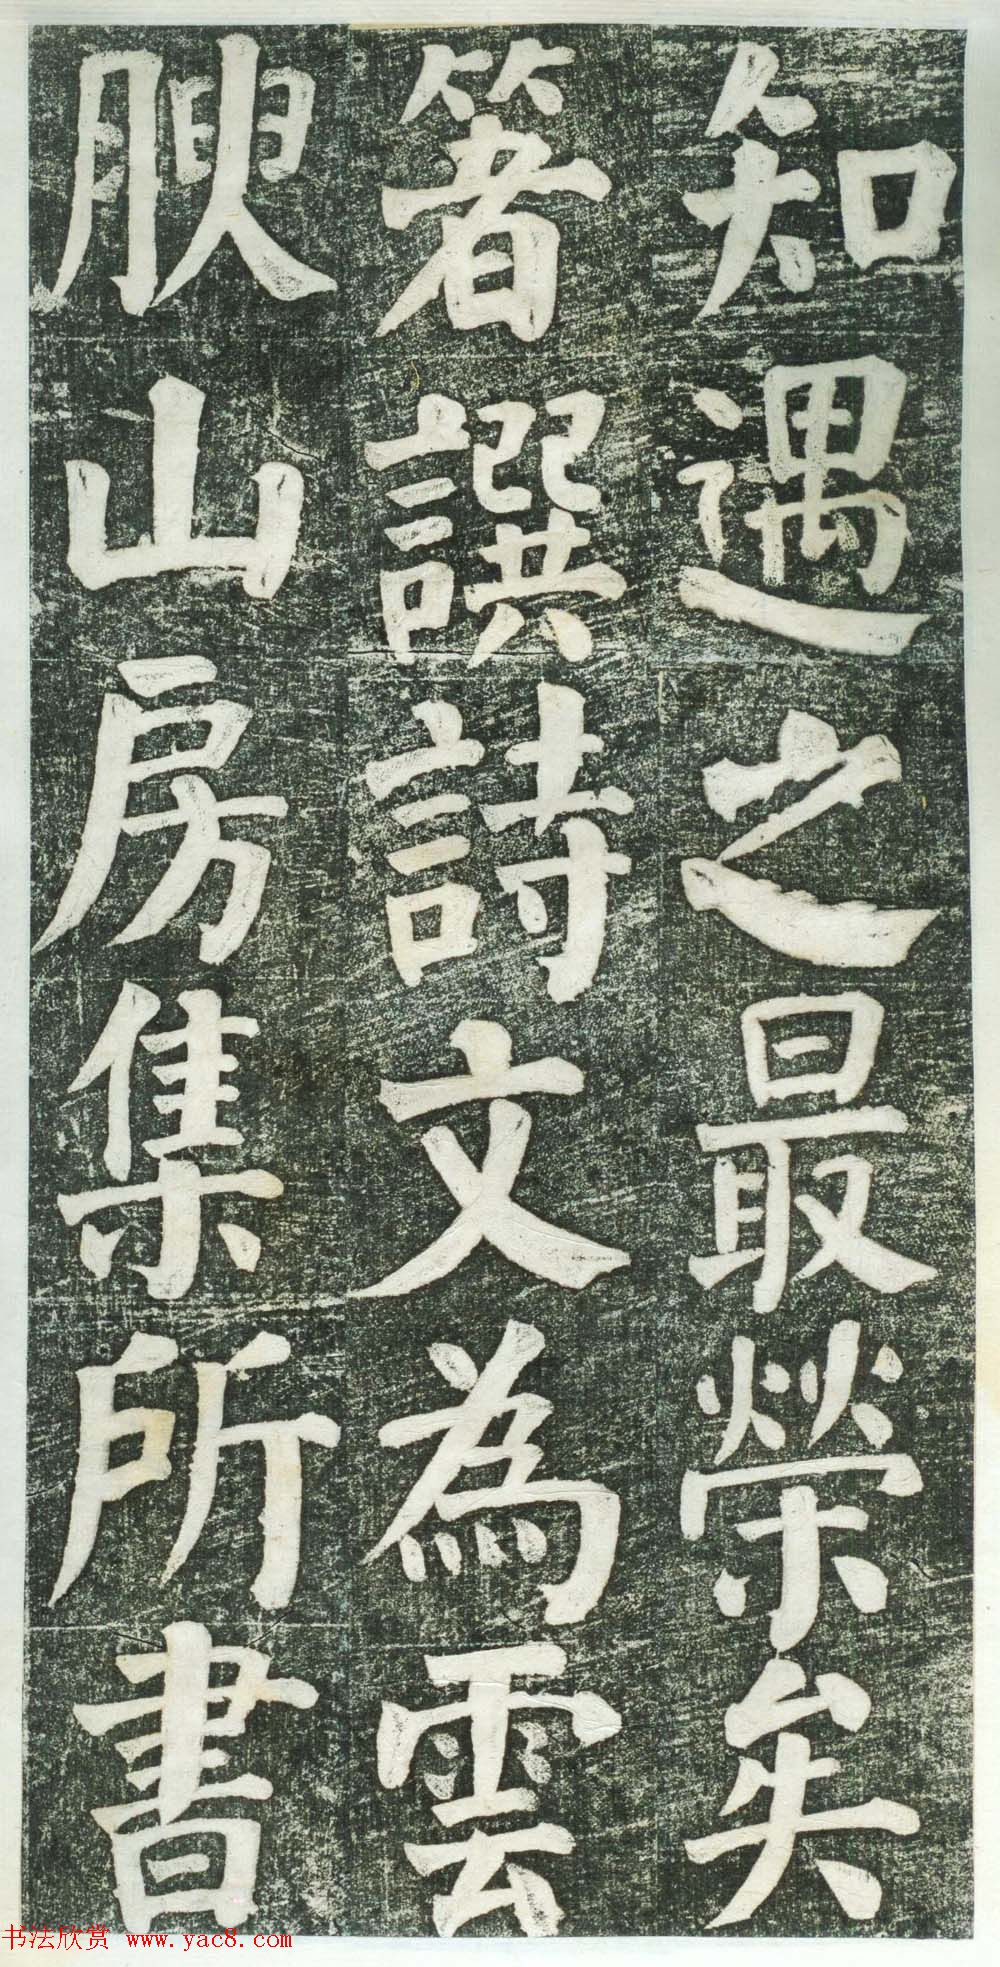 知遇之最榮矣
箸譔詩文為雲
腴山房集所書
书法欣赏 www.yac8.com